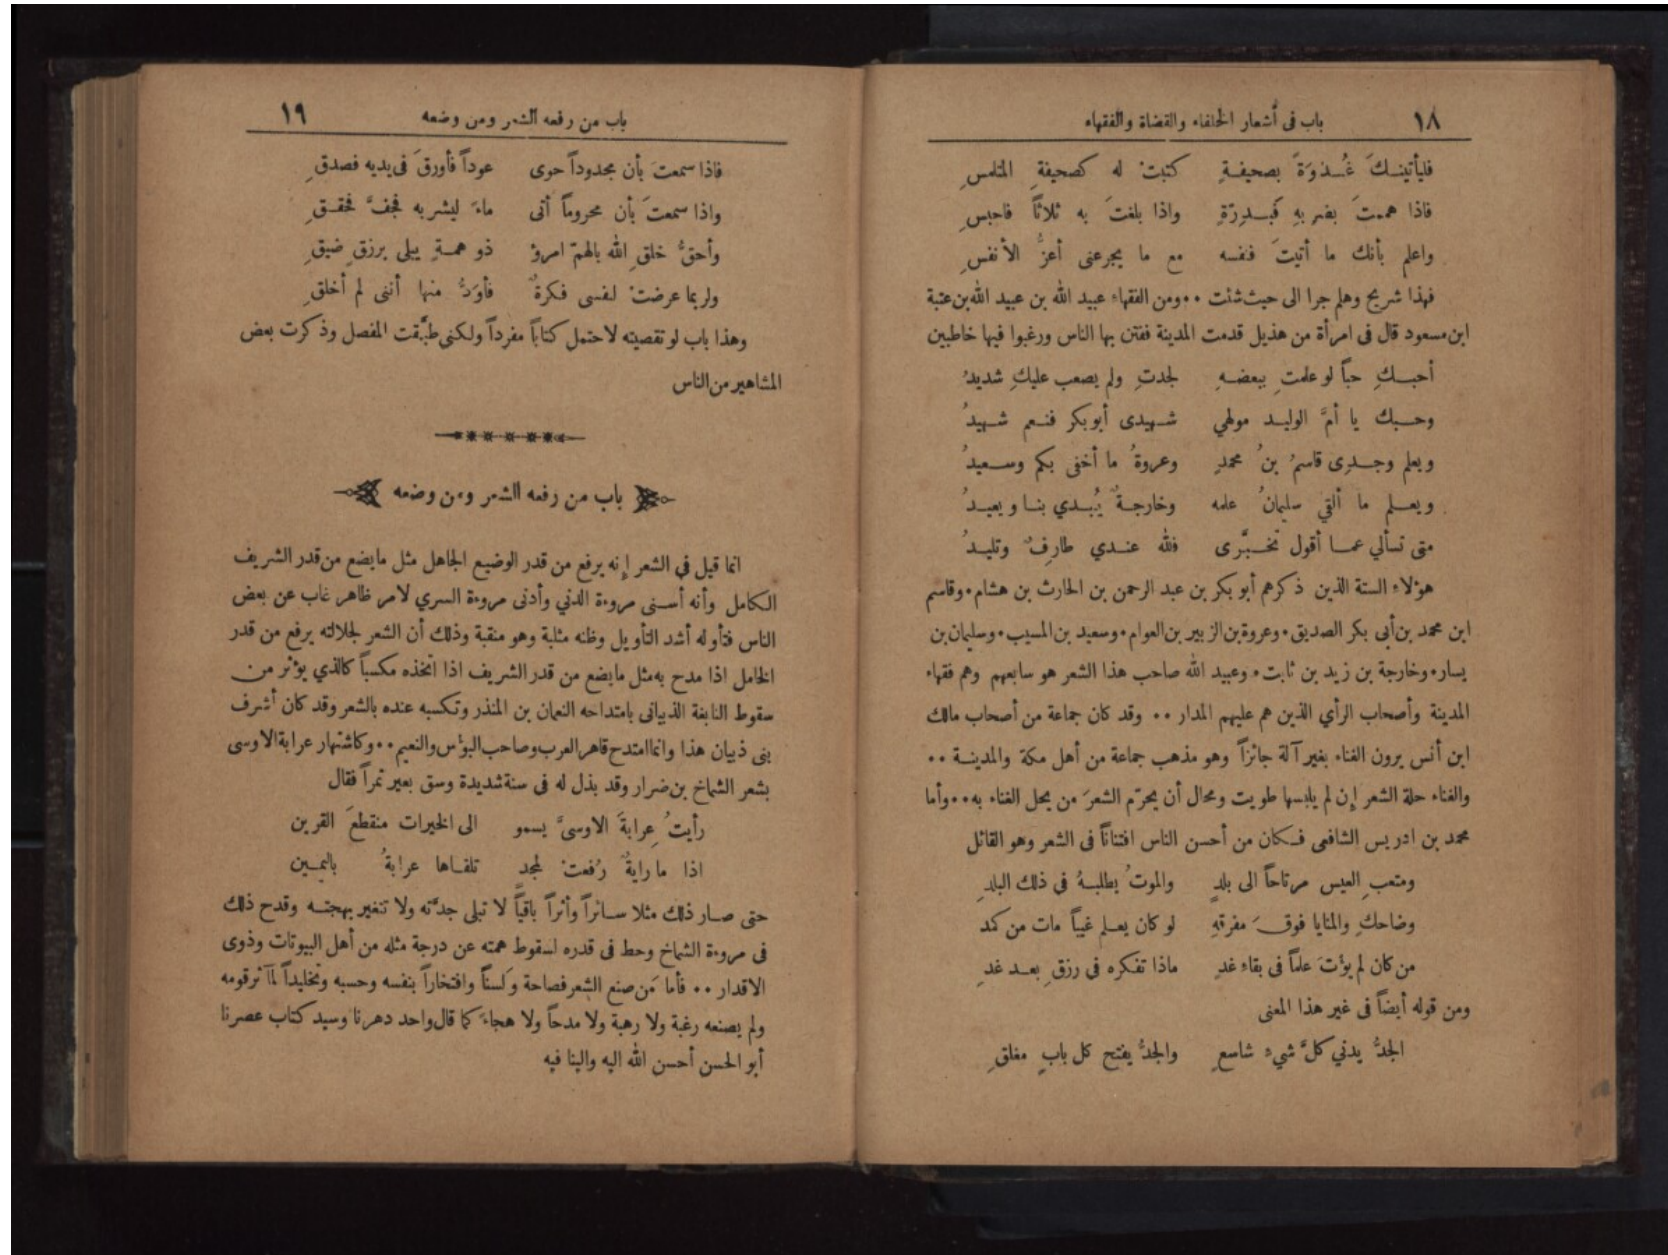 ١٨
باب فى أشعار الخلفاء والقضاة والفقهاء
فليأتينـكَ غُـدْوَةً بصحيفـةٍ كتبتْ له كصحيفةِ المتلمسِ
فاذا هممتَ بضربهِ فَبـدِرّةٍ واذا بلغتَ به ثلاثاً فاحبسِ
واعلم بأنك ما أتيتَ فنفسه مع ما يجرعنى أعزُّ الأنفسِ
فهذا شريح وهلم جرا الى حيث شئت ٠٠ ومن الفقهاء عبيد الله بن عبيد الله بن عتبة
ابن مسعود قال فى امرأة من هذيل قدمت المدينة ففتن بها الناس ورغبوا فيها خاطبين
أحبـكِ حباً لو علمتِ ببعضـهِ لجدتِ ولم يصعب عليكِ شديدُ
وحـبك يا أمَّ الوليـد مولهي شـهيدى أبو بكر فنـعم شـهيدُ
ويعلم وجـدِى قاسمُ بنُ محمدٍ وعروةُ ما أخفى بكم وسـعيدُ
ويعـلم ما ألقي سليمانُ علمه وخارجـةٌ يُبـدي بنـا ويعيـدُ
متى تسألي عمـا أقول تخـبَّرى فلله عنـدي طارِفٌ وتليـدُ
هؤلاء الستة الذين ذكرهم أبو بكر بن عبد الرحمن بن الحارث بن هشام ٠ وقاسم
ابن محمد بن أبى بكر الصديق ٠ وعروة بن الزبير بن العوام ٠ وسعيد بن المسيب ٠ وسليمان بن
يسار ٠ وخارجة بن زيد بن ثابت ٠ وعبيد الله صاحب هذا الشعر هو سابعهم وهم فقهاء
المدينة وأصحاب الرأي الذين هم عليهم المدار ٠٠ وقد كان جماعة من أصحاب مالك
ابن أنس يرون الغناء بغير آلة جائزاً وهو مذهب جماعة من أهل مكة والمدينـة ٠٠
والغناء حلة الشعر إن لم يلبسها طويت ومحال أن يحرّم الشعرَ من يحل الغناء به ٠٠ وأما
محمد بن ادريس الشافعى فـكان من أحسن الناس افتناناً فى الشعر وهو القائل
ومتعبِ العيس مرتاحاً الى بلدٍ والموتُ يطلبـهُ فى ذلك البلدِ
وضاحكٍ والمنايا فوقـَ مفرقهِ لو كان يعـلم غيباً مات من كمد
من كان لم يؤتَ علماً فى بقاء غدٍ ماذا تفكره فى رزقِ بعـد غدِ
ومن قوله أيضاً فى غير هذا المعنى
الجدُّ يدني كلَّ شيءٍ شاسعٍ والجدُّ يفتح كل بابٍ مغلقِ
باب من رفعه الشعر ومن وضعه
١٩
فاذا سمعتَ بأن مجدوداً حوى عوداً فأورقَ فى يديه فصدقِ
واذا سمعتَ بأن محروماً أتى ماءً ليشربه فجفَّ فحققِ
وأحقُّ خلقِ الله بالهمّ امرؤ ذو همـةٍ يبلى برزقٍ ضيقِ
ولربما عرضتْ لنفسى فكرةٌ فأوَدُّ منها أننى لم أخلقِ
وهذا باب لو تقصيته لاحتمل كتاباً مفرداً ولكنى طبَّقت المفصل وذكرت بعض
المشاهير من الناس
باب من رفعه الشعر ومن وضعه
انما قيل في الشعر إنه يرفع من قدر الوضيع الجاهل مثل مايضع من قدر الشريف
الكامل وأنه أسـنى مروءة الدني وأدنى مروءة السري لامر ظاهر غاب عن بعض
الناس فتأوله أشد التأويل وظنه مثلبة وهو منقبة وذلك أن الشعر لجلالته يرفع من قدر
الخامل اذا مدح به مثل مايضع من قدر الشريف اذا اتخذه مكسباً كالذي يؤثر من
سقوط النابغة الذبيانى بامتداحه النعمان بن المنذر وتكسبه عنده بالشعر وقد كان أشرف
بنى ذبيان هذا وانما امتدح قاهر العرب وصاحب البؤس والنعيم ٠٠ وكاشتهار عرابة الاوسى
بشعر الشماخ بن ضرار وقد بذل له فى سنة شديدة وسق بعير تمراً فقال
رأيتُ عِرابةَ الاوسىَّ يسمو الى الخيرات منقطعَ القرين
اذا ما رايةٌ رُفعتْ لمجد تلقـاها عرابةُ باليمـين
حتى صـار ذلك مثلا سـائراً وأثراً باقياً لا تبلى جدَّته ولا تتغير بهجتـه وقدح ذلك
فى مروءة الشماخ وحط فى قدره لسقوط همته عن درجة مثله من أهل البيوتات وذوى
الاقدار ٠٠ فأما مَن صنع الشعر فصاحة وَلسناً وافتخاراً بنفسه وحسبه وتخليداً لمآثر قومه
ولم يصنعه رغبة ولا رهبة ولا مدحاً ولا هجاءً كما قال واحد دهرنا وسيد كتاب عصرنا
أبو الحسن أحسن الله اليه والينا فيه